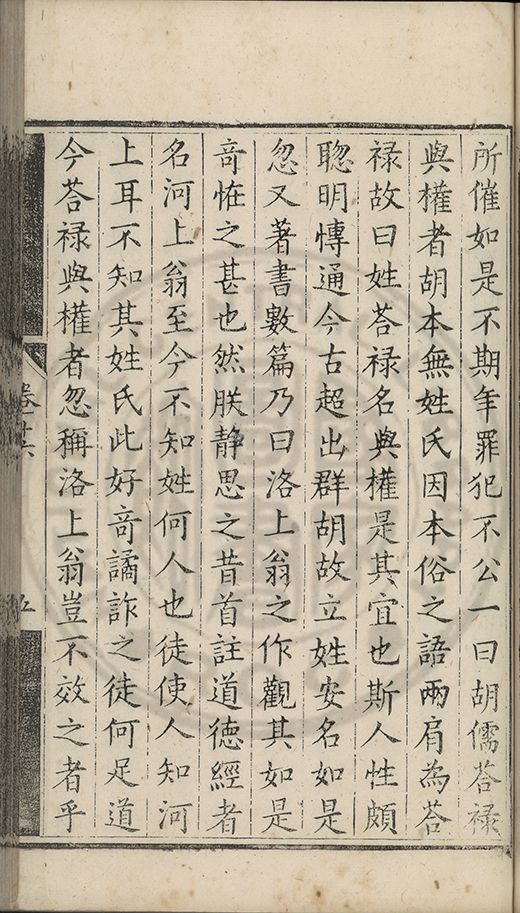 所催如是不期年罪犯不公一曰胡儒荅禄
與權者胡本無姓氏因本俗之語兩肩為荅
禄故曰姓荅禄名與權是其宜也斯人性頗
聦明愽通今古超出群胡故立姓安名如是
忽又著書數篇乃曰洛上翁之作觀其如是
竒恠之甚也然朕静思之昔首註道徳經者
名河上翁至今不知姓何人也徒使人知河
上耳不知其姓氏此好竒譎詐之徒何足道
今荅禄與權者忽稱洛上翁豈不效之者乎
卷十六
五